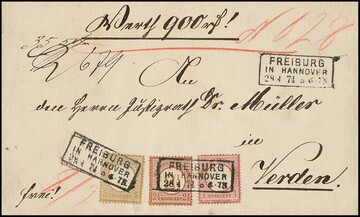 Werth 900 rf!
FREIBURG
IN HANNOVER
28 4 74 6-7N
An
den Herrn Justizrath Dr. Müller
in
Verden.
frei!
FREIBURG
IN HANNOVER
28 4 74 6-7N
FREIBURG
IN HANNOVER
28 4 74 6-7N